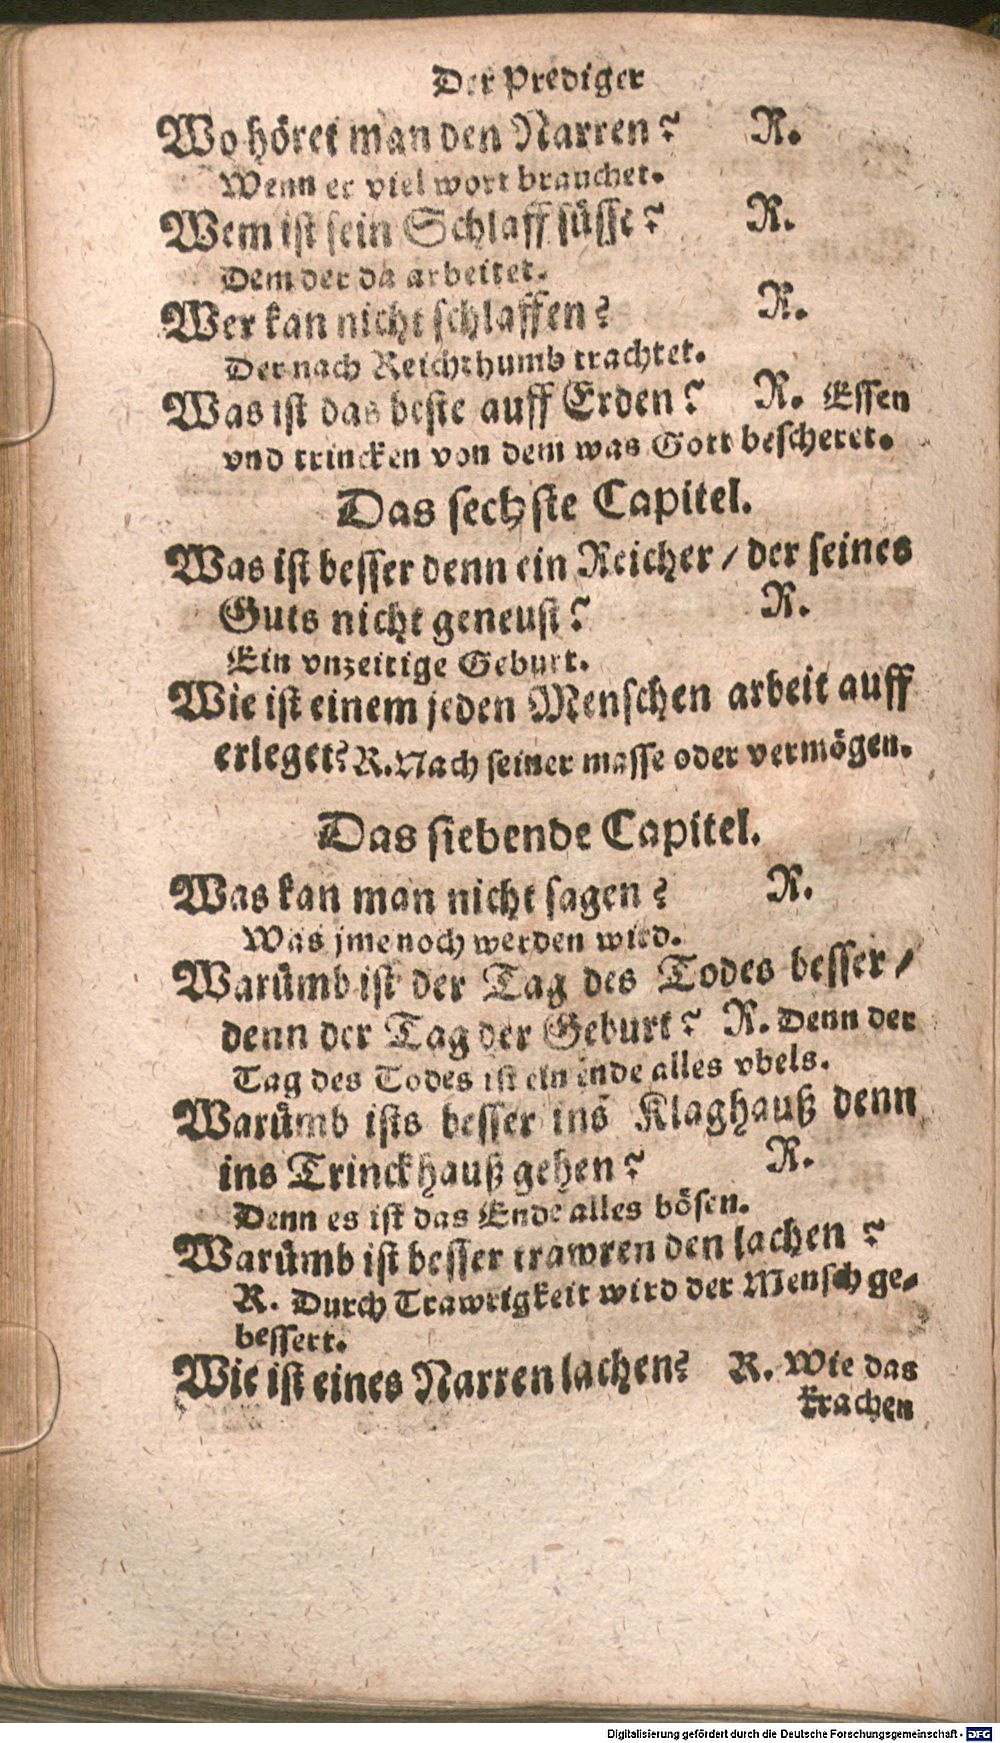 Der Prediger
Wo höret man den Narren? R.
Wenn er viel wort brauchet.
Wem ist sein Schlaff süsse? R.
Dem der da arbeitet.
Wer kan nicht schlaffen? R.
Der nach Reichthumb trachtet.
Was ist das beste auff Erden? R. Essen
vnd trincken von dem was Gott bescheret.
Das sechste Capitel.
Was ist besser denn ein Reicher / der seines
Guts nicht geneust? R.
Ein vnzeitige Geburt.
Wie ist einem jeden Menschen arbeit auff
erleget? R. Nach seiner masse oder vermögen.
Das siebende Capitel.
Was kan man nicht sagen? R.
Was jme noch werden wird.
Warümb ist der Tag des Todes besser /
denn der Tag der Geburt? R. Denn der
Tag des Todes ist ein ende alles vbels.
Warümb ists besser ins Klaghauß denn
ins Trinckhauß gehen? R.
Denn es ist das Ende alles bösen.
Warümb ist besser trawren den lachen?
R. Durch Trawrigkeit wird der Mensch ge-
bessert.
Wie ist eines Narren lachen? R. Wie das
krachen
Digitalisierung gefördert durch die Deutsche Forschungsgemeinschaft - DFG